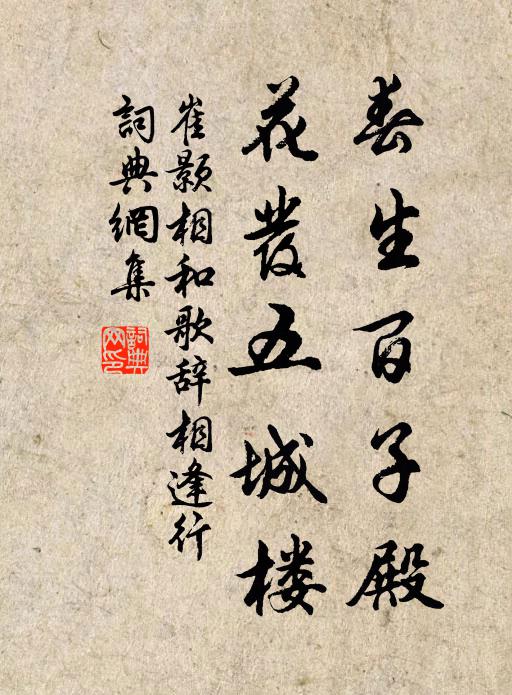 春生百子殿
花發五城楼
崔颢相和歌辞相逢行
詞典網集
詞典網印